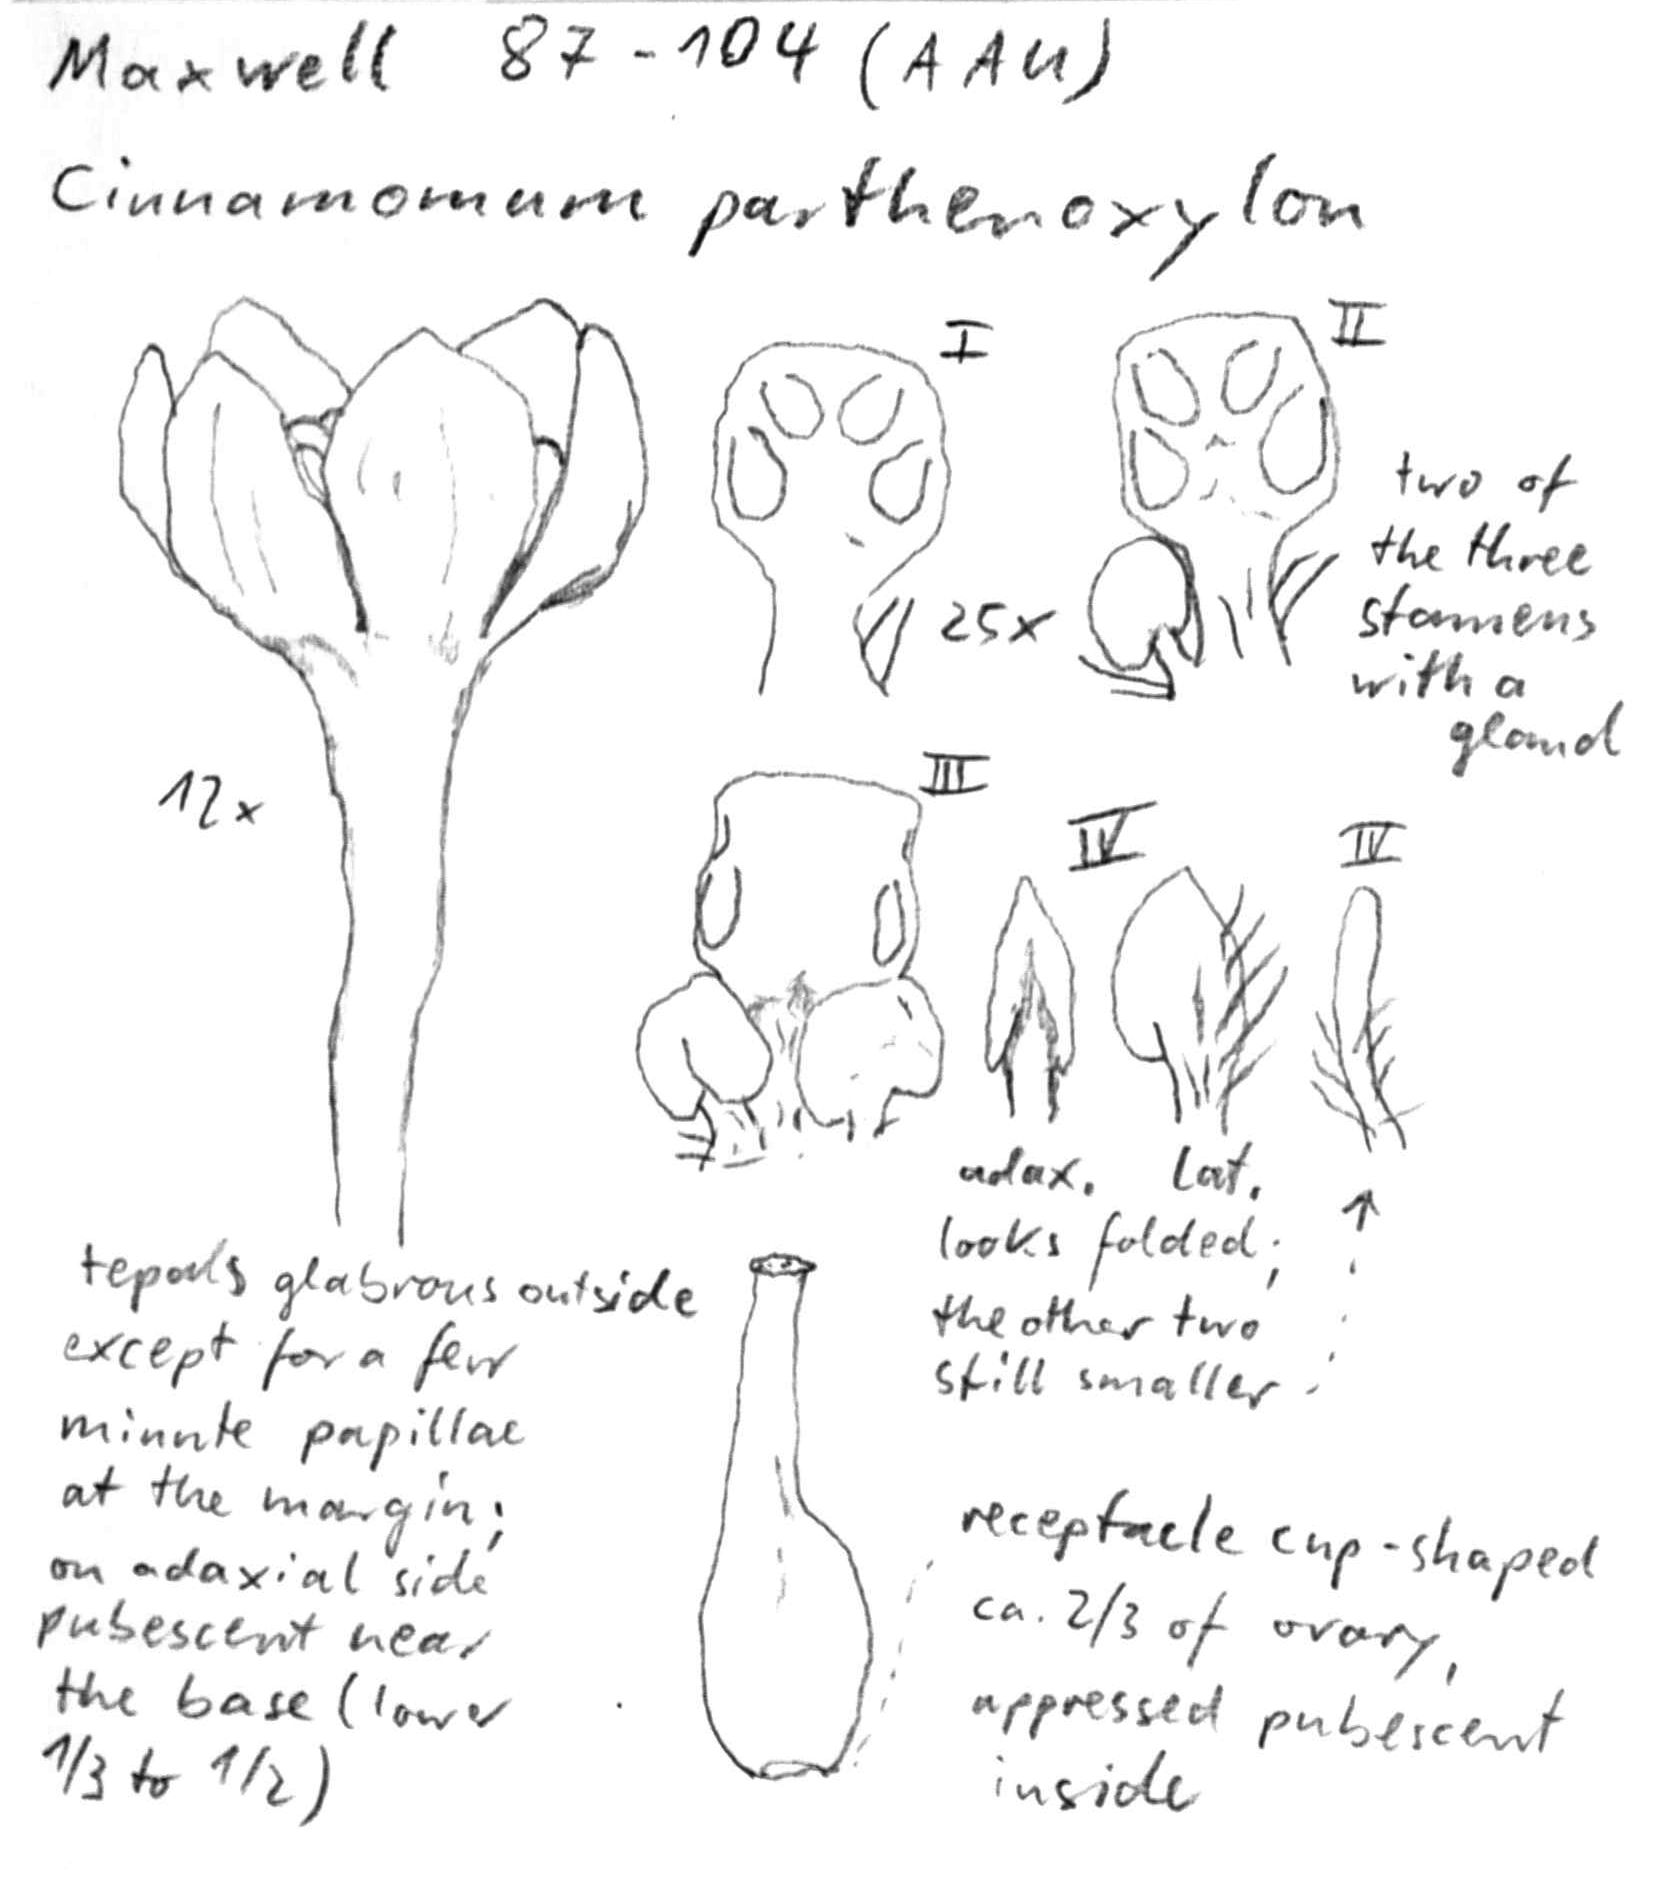 Maxwell 87-104 (AAU)
Cinnamomum parthenoxylon
I
II
25x
two of
the three
stamens
with a
gland
12x
III
IV
IV
adax. lat.
looks folded;
the other two
still smaller
tepals glabrous outside
except for a few
minute papillae
at the margin;
on adaxial side
pubescent near
the base (lower
1/3 to 1/2)
receptacle cup-shaped
ca. 2/3 of ovary,
appressed pubescent
inside